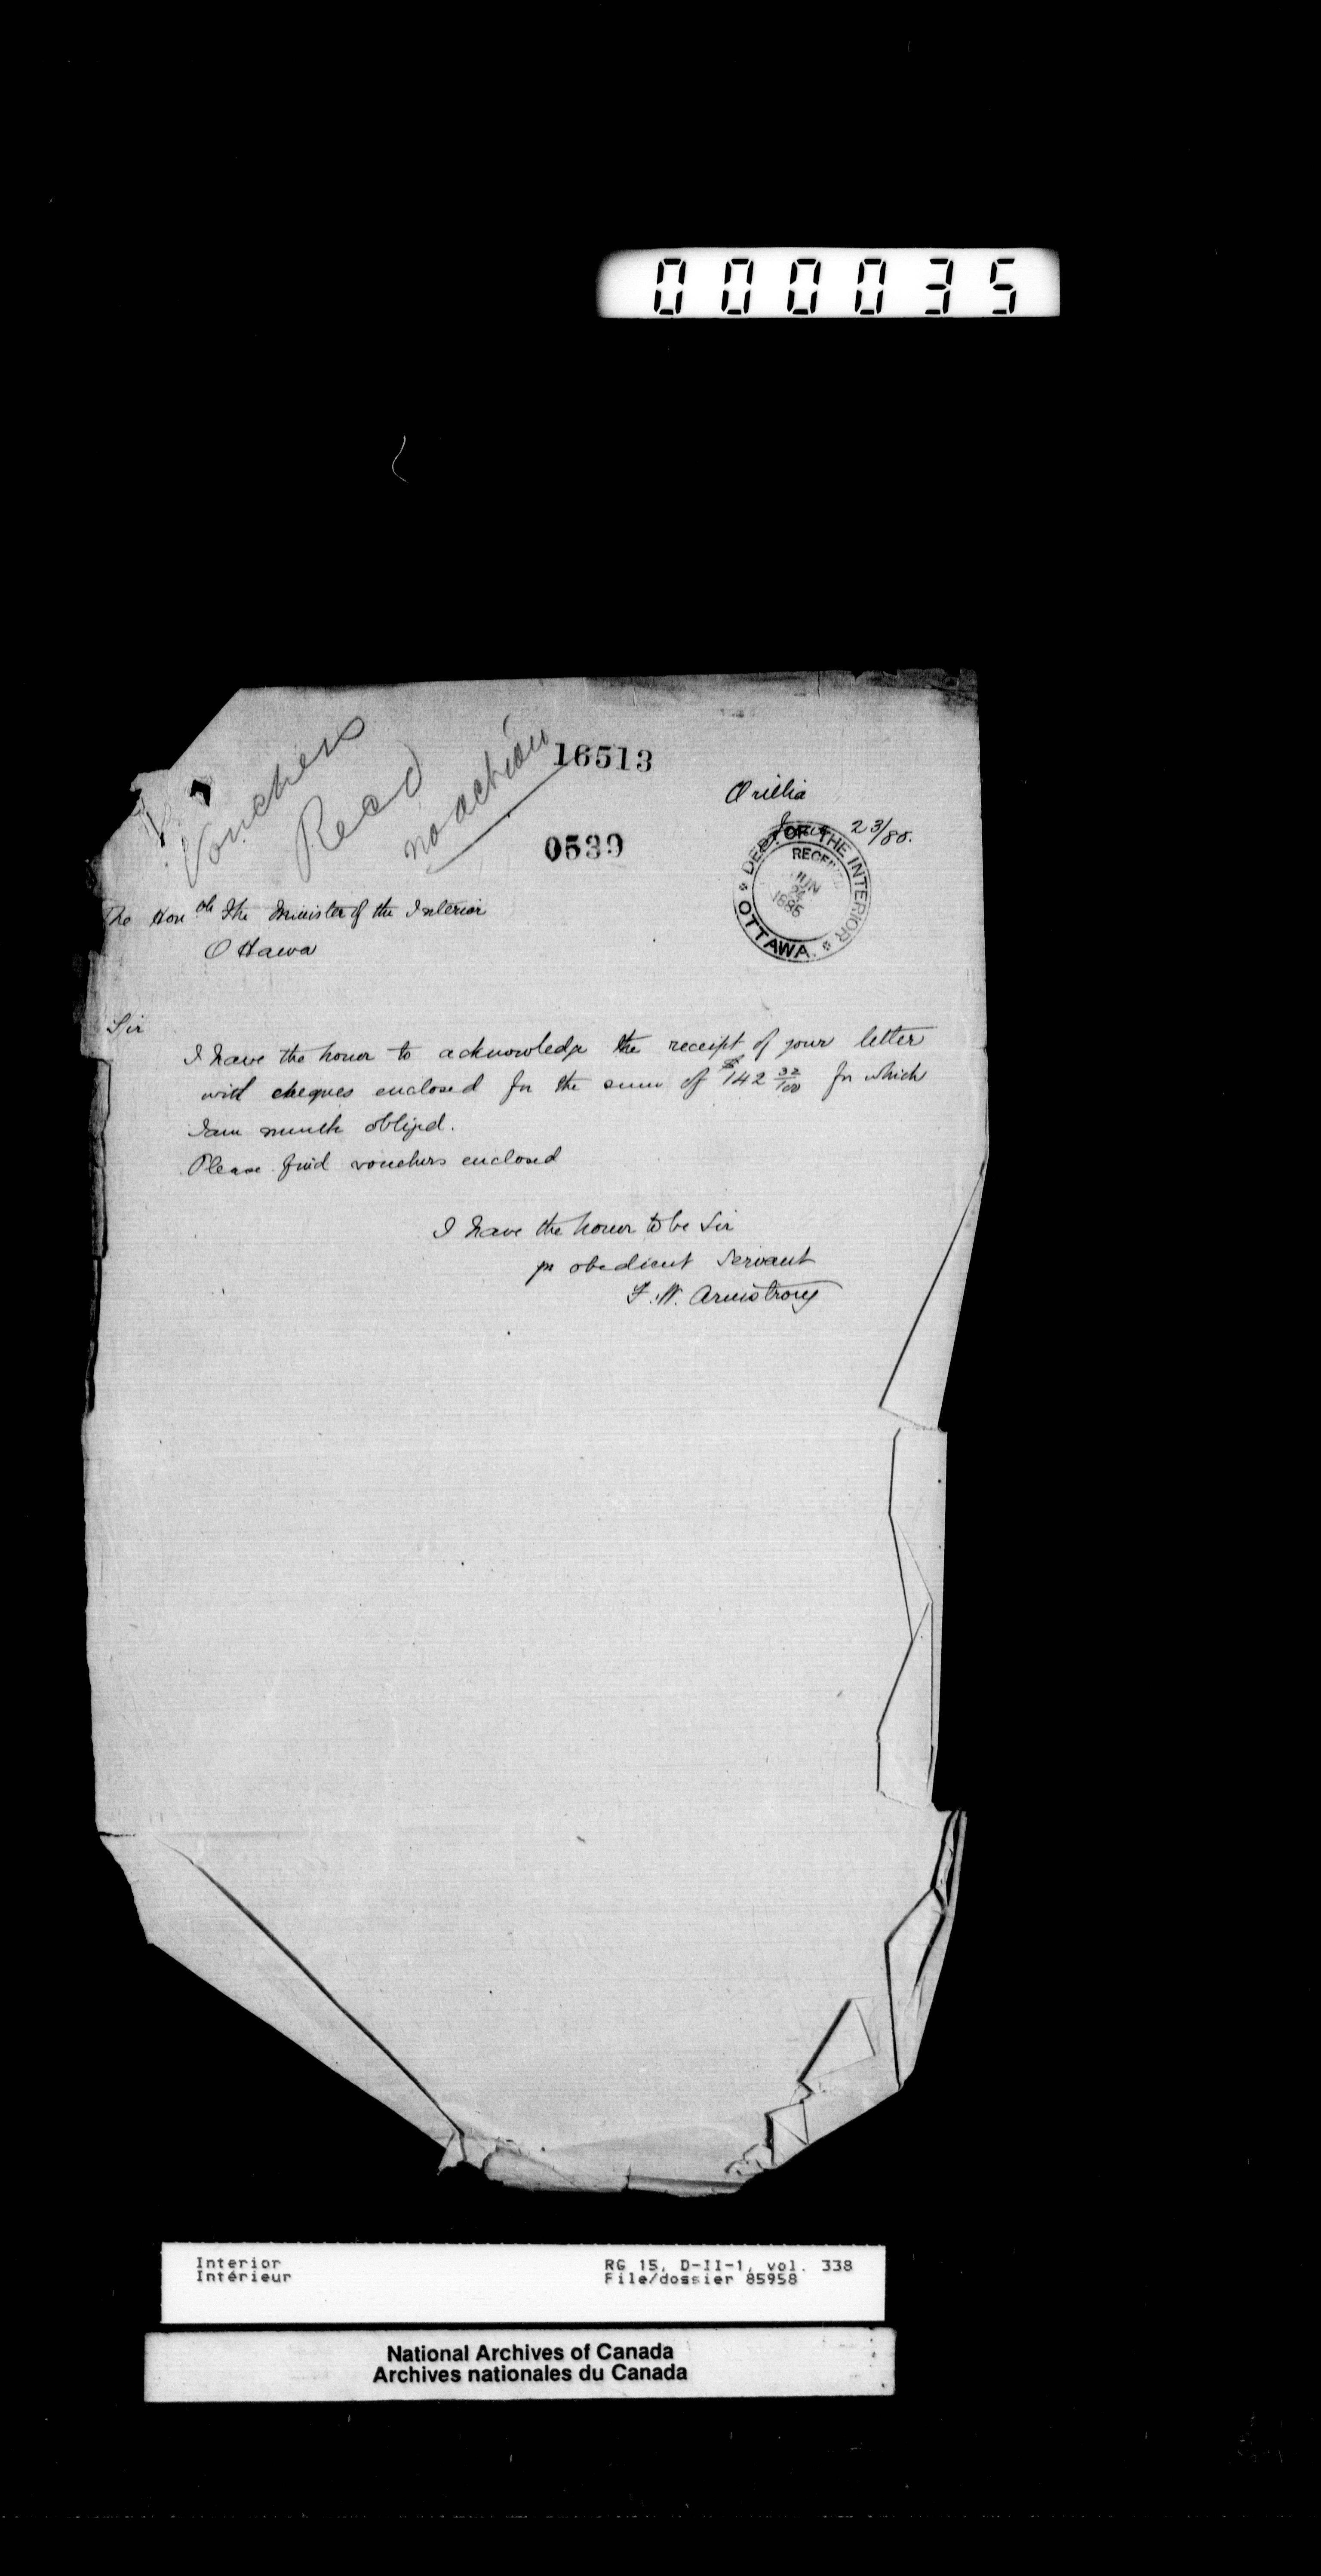 000035
Vouchers
Recd
no action
16513
0539
Orillia
June 23/85.
DEPT OF THE INTERIOR
RECEIVED
JUN
24
1885
OTTAWA.
The Honble The Minister of the Interior
Ottawa
Sir
I have the honor to acknowledge the receipt of your letter
with cheques enclosed for the sum of $142 32/100 for which
I am much obliged.
Please find vouchers enclosed
I have the honor to be Sir
yr obedient Servant
F. W. Armstrong
Interior
Intérieur
RG 15, D-II-1, vol. 338
File/dossier 85958
National Archives of Canada
Archives nationales du Canada